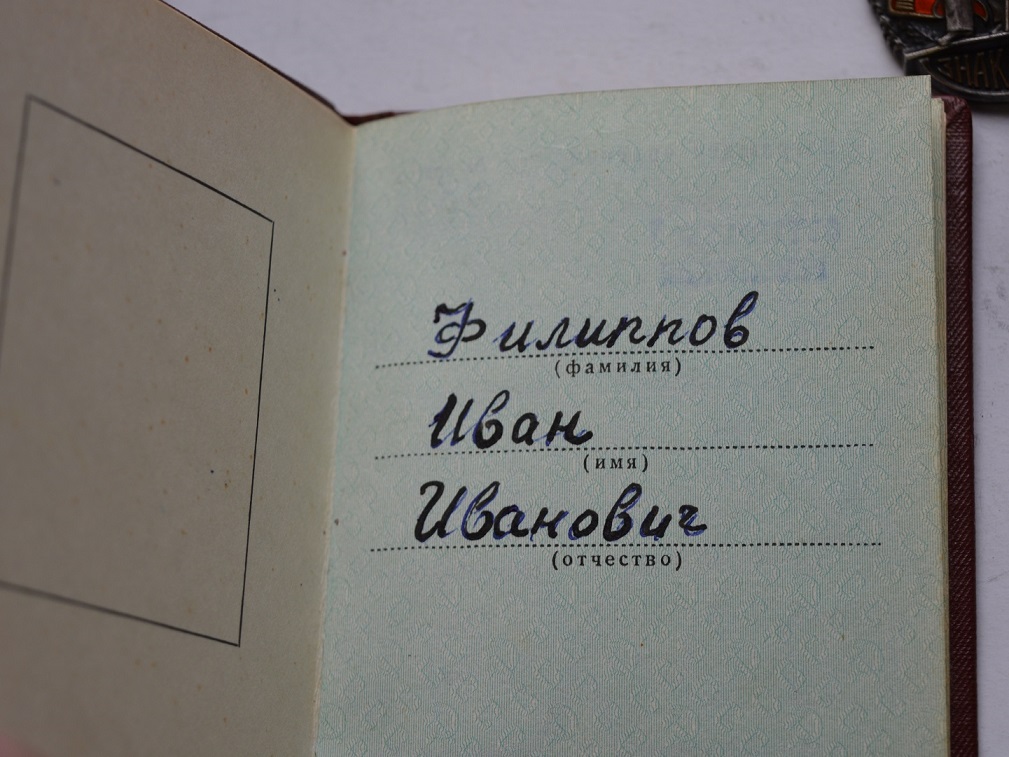 ЗНАК
Филиппов
(фамилия)
Иван
(имя)
Иванович
(отчество)